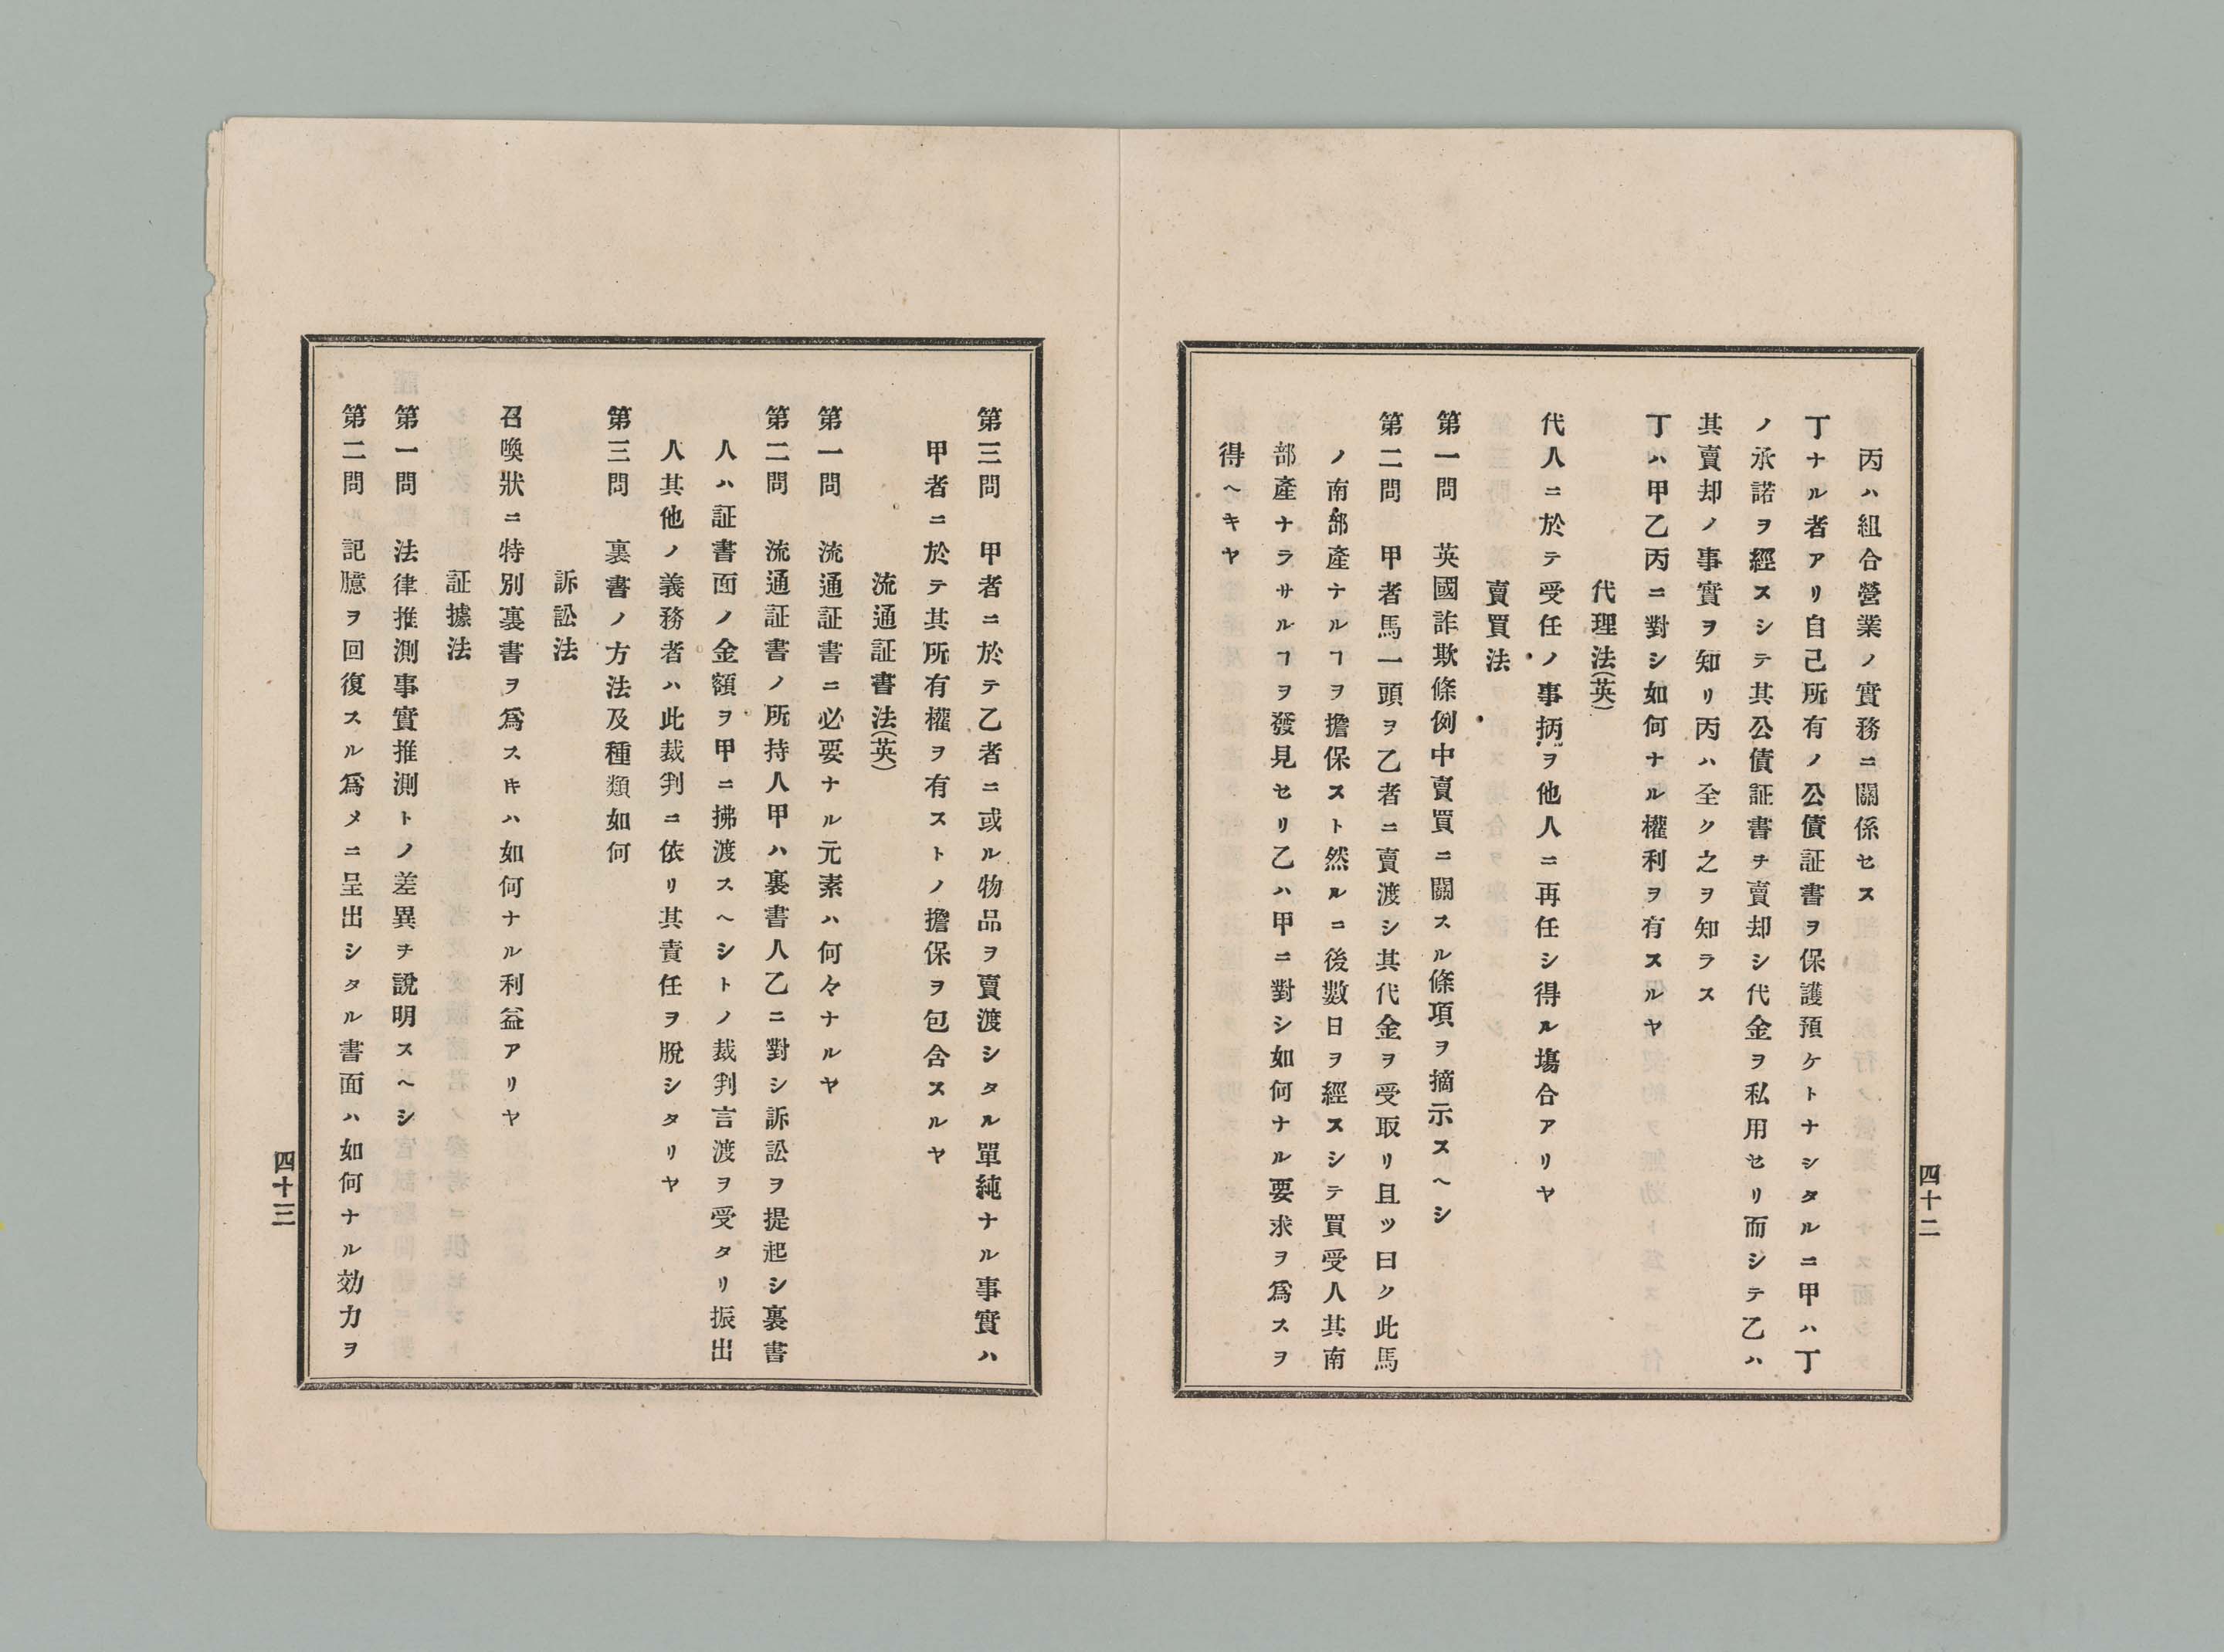 四十二
丙ハ組合營業ノ實務ニ關係セス
丁ナル者アリ自己所有ノ公債証書ヲ保護預ケトナシタルニ甲ハ丁
ノ承諾ヲ經スシテ其公債証書ヲ賣却シ代金ヲ私用セリ而シテ乙ハ
其賣却ノ事實ヲ知リ丙ハ全ク之ヲ知ラス
丁ハ甲乙丙ニ對シ如何ナル權利ヲ有スルヤ
代理法(英)
代人ニ於テ受任ノ事柄ヲ他人ニ再任シ得ル塲合アリヤ
賣買法
第一問　英國詐欺條例中賣買ニ關スル條項ヲ摘示スヘシ
第二問　甲者馬一頭ヲ乙者ニ賣渡シ其代金ヲ受取リ且ツ曰ク此馬
ノ南部產ナルヿヲ擔保スト然ルニ後數日ヲ經スシテ買受人其南
部產ナラサルヿヲ發見セリ乙ハ甲ニ對シ如何ナル要求ヲ爲スヲ
得ヘキヤ
第三問　甲者ニ於テ乙者ニ或ル物品ヲ賣渡シタル單純ナル事實ハ
甲者ニ於テ其所有權ヲ有ストノ擔保ヲ包含スルヤ
流通証書法(英)
第一問　流通証書ニ必要ナル元素ハ何々ナルヤ
第二問　流通証書ノ所持人甲ハ裏書人乙ニ對シ訴訟ヲ提起シ裏書
人ハ証書面ノ金額ヲ甲ニ拂渡スヘシトノ裁判言渡ヲ受タリ振出
人其他ノ義務者ハ此裁判ニ依リ其責任ヲ脫シタリヤ
第三問　裏書ノ方法及種類如何
訴訟法
召喚狀ニ特別裏書ヲ爲スキハ如何ナル利益アリヤ
証據法
第一問　法律推測事實推測トノ差異ヲ說明スヘシ
第二問　記臆ヲ回復スル爲メニ呈出シタル書面ハ如何ナル効力ヲ
四十三